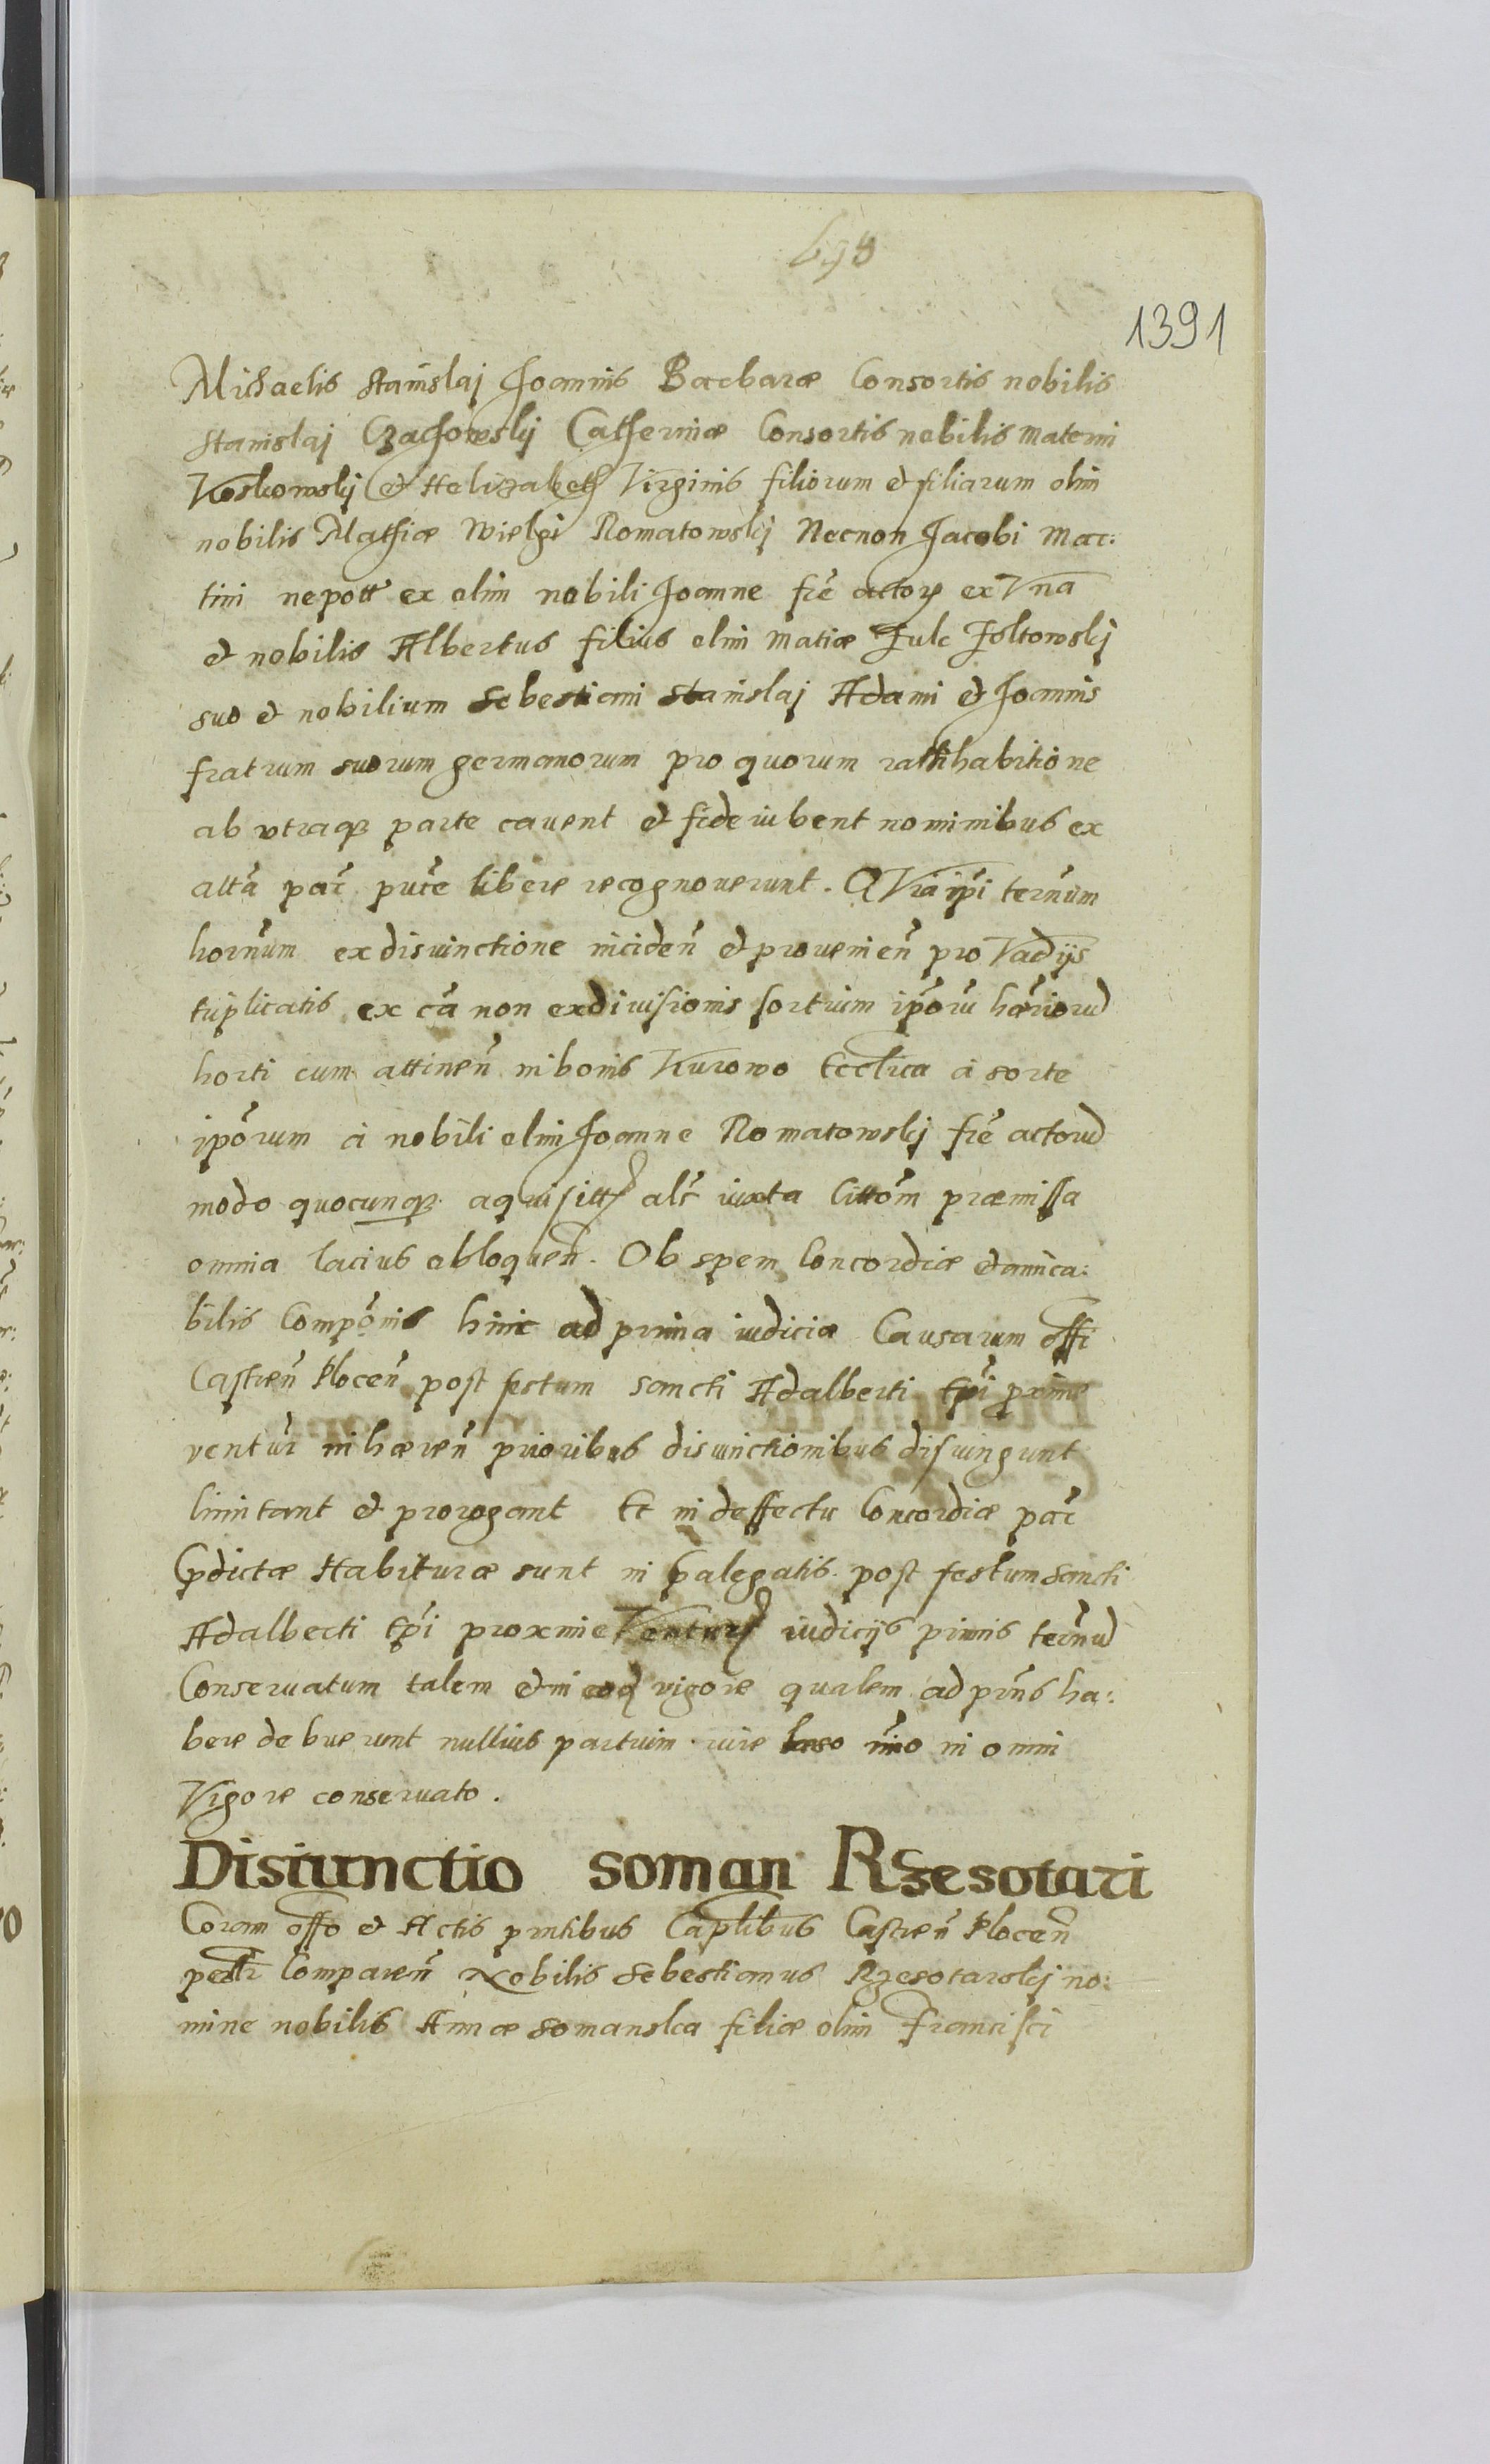 698
1391
Michaelis Stanislaj Joannis Barbaræ Consortis nobilis
Stanislaj Czachowskj Catherinæ Consortis nobilis Materni
Koskowskj et Helizabeth Virginis filiorum et filiarum olim
nobilis Mathiæ Wielgi Romatowskj Necnon Jacobi Mar:
tini nepott ex olim nobili Joanne fre actor ex Vna
et nobilis Albertus filius olim Matiæ
suo et nobilium Sebestiani Stanislaj Adami et Joannis
fratrum suorum germanorum pro quorum rattihabitione
ab vtraq parte cauent et fideiubent nominibus ex
alta par pure libere recognouerunt. QVia ipi ternum
hornum ex disiunctione inciden et prouenien pro Vadijs
triplicatis ex ca non exdiuisionis sortium iporu
horti cum attinen in bonis Kurowo a sorte
iporum a nobili olim Joanne Romatowskj fre actorum
modo quocunq aquisitt als iuxta littom præmissa
omnia lacius obloquen. Ob spem Concordiæ et amica:
bilis Componis hinc ad prima iudicia Causarum offi
Castren Plocen post festum sancti Adalberti Epi proxime
ventur inhæren prioribus disiunctionibus disiungunt
limitant et prorogant Et in deffectu Concordiæ par
pdictæ Habituræ sunt in palegatis post festum sancti
Adalberti Epi proxime Ventur iudicijs primis ternum
Conseruatum talem et in eoq vigore qualem ad prns ha:
bere debuerunt nullius partium iure læso imo in omni
Vigore conseruato.
Disiunctio soman Rzesotari
Coram offo et Actis prntibus Caplibus Castren Plocen
pertr Comparen Nobilis Sebestianus Rzesotarskj no:
mine nobilis Annæ Somanska filiæ olim Francisci